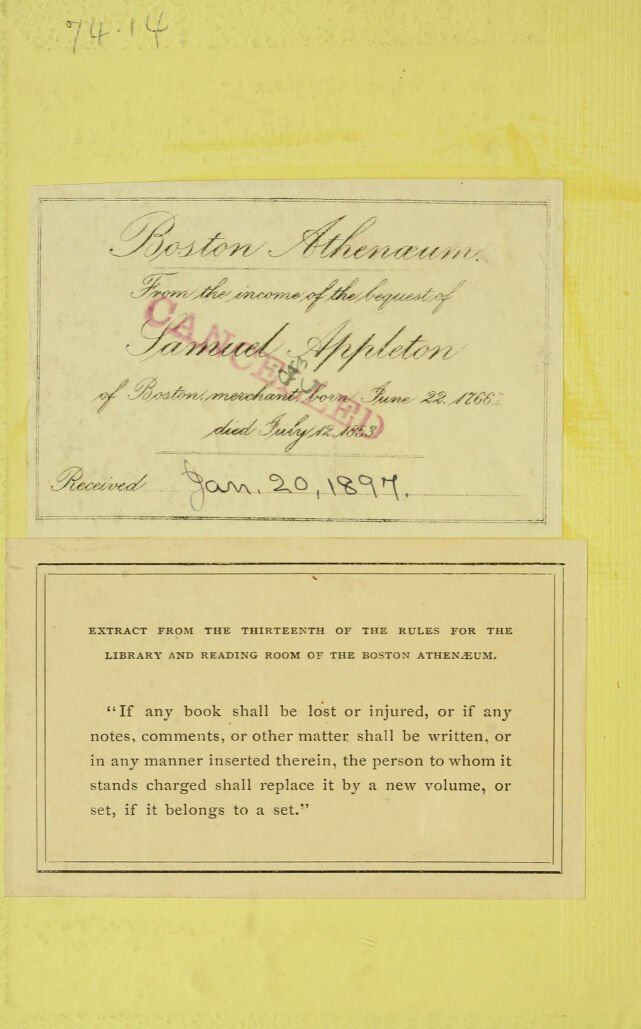 74.14
Boston Athenæum.
From the income of the bequest of
Samuel Appleton
of Boston, merchant, born June 22, 1766:
died July 12, 1853.
CANCELLED
Received Jan. 20, 1897.
EXTRACT FROM THE THIRTEENTH OF THE RULES FOR THE
LIBRARY AND READING ROOM OF THE BOSTON ATHENÆUM.
"If any book shall be lost or injured, or if any
notes, comments, or other matter shall be written, or
in any manner inserted therein, the person to whom it
stands charged shall replace it by a new volume, or
set, if it belongs to a set."